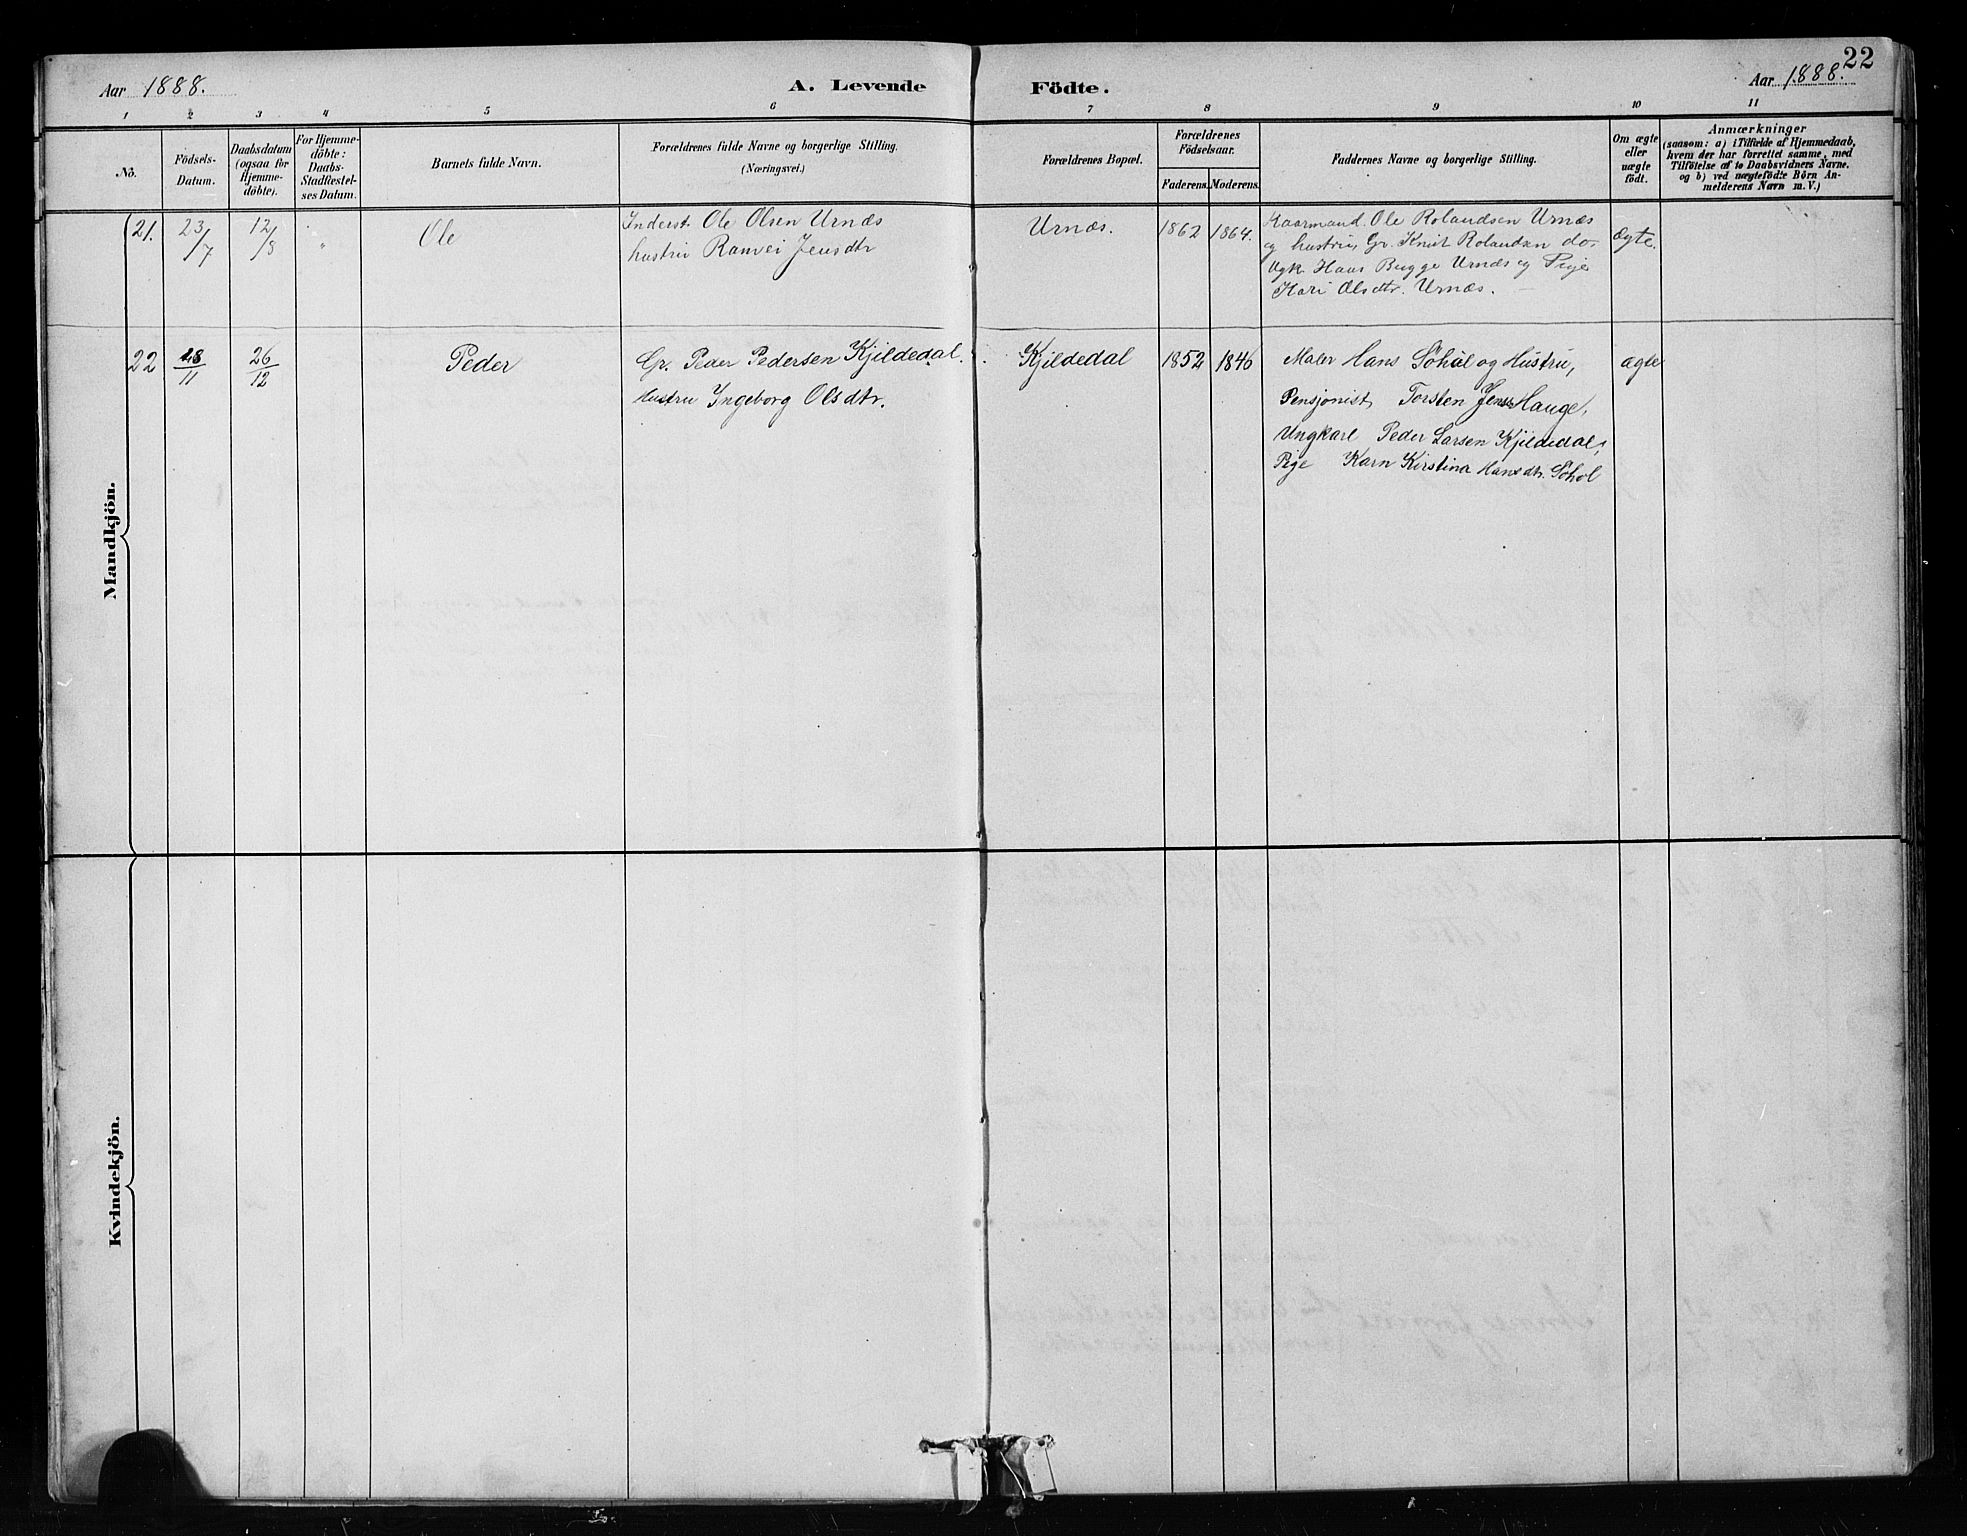 22
Aar 1888.
A. Levende Födte.
Aar 1888.
1 2 3 4 5 6 7 8 9 10 11
No.
Födsels-
Datum.
Daabsdatum
(ogsaa for
Hjemme-
döbte).
For Hjemme-
döbte:
Daabs-
Stadfestel-
ses Datum.
Barnets fulde Navn.
Forældrenes fulde Navne og borgerlige Stilling.
(Næringsvei.)
Forældrenes Bopæl.
Forældrenes
Födselsaar.
Faderens. Moderens.
Faddernes Navne og borgerlige Stilling.
Om ægte
eller
uægte
födt.
Anmærkninger
(saasom: a) i Tilfælde af Hjemmedaab,
hvem der har forrettet samme, med
Tilföielse af to Daabsvidners Navne.
og b) ved uægtefödte Börn An-
melderens Navn m. V.)
Mandkjön.
21.
23/7
12/8
"
Ole
Inderst. Ole Olsen Urnæs
hustru Ranvei Jensdtr
Urnæs.
1862
1864.
Kaarmand. Ole Rolandsen Urnæs
og hustru, Gr. Knut Rolandsen do-
Ugk. Hans Bugge Urnæs og Pige
Kari Olsdtr. Urnæs.
Ægte.
22
18/11
26/12
Peder
Gr. Peder Pedersen Kjildedal.
Hustru Ingeborg Olsdtr.
Kjildedal
1852
1846
Maler Hans Söhol og Hustru,
Pensjonist Torsten Jens Hauge,
Ungkarl Peder Larsen Kjildedal,
Pige Karn Kirstina Hansdtr. Söhol
ægte
Kvindekjön.